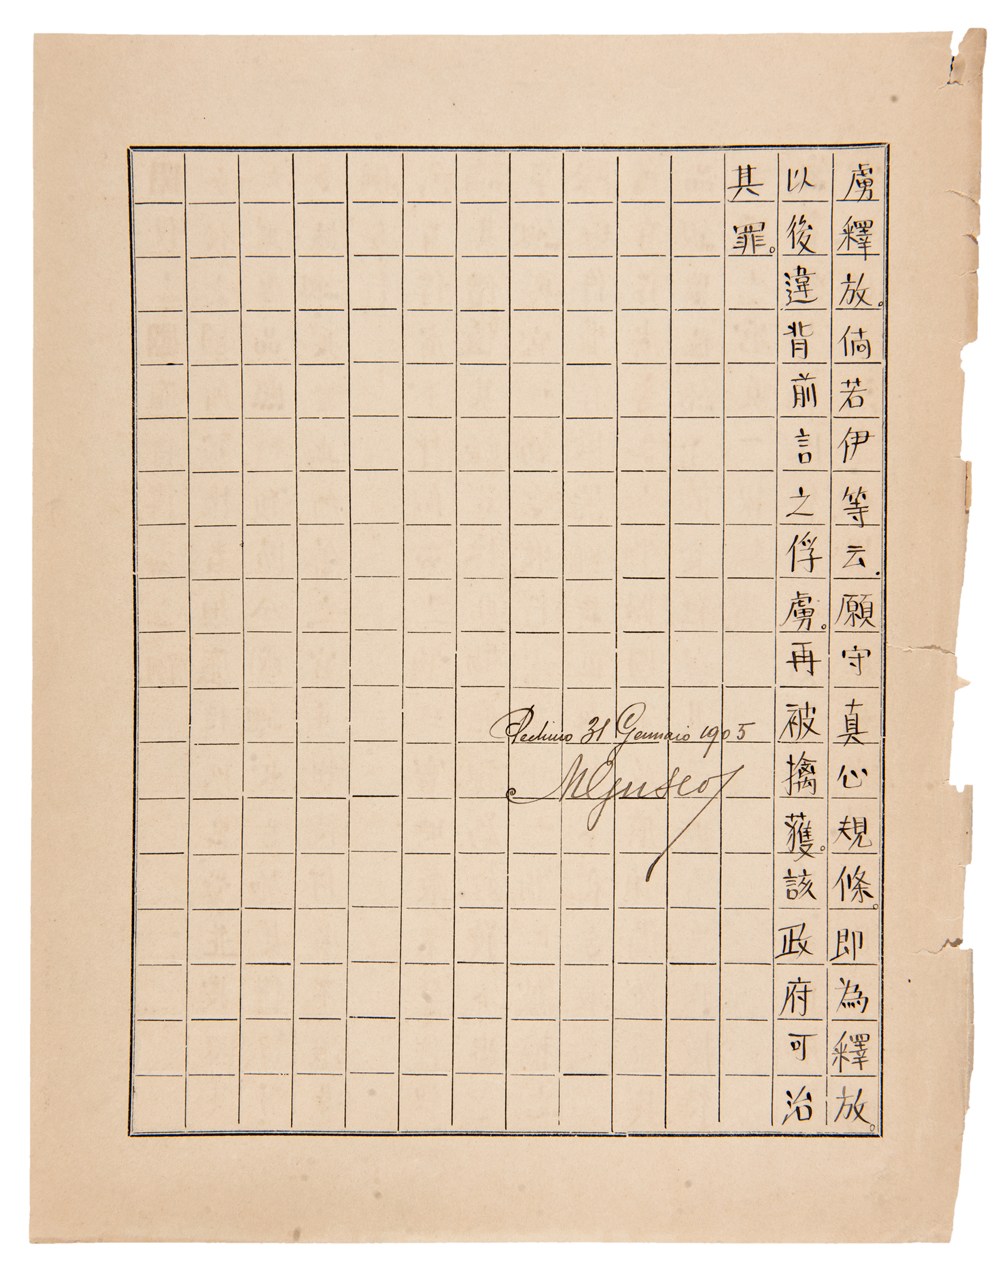 虜釋放。倘若伊等云.願守真心規條。即為釋放。
以後違背前言之俘虜。再被擒獲。該政府可治
其罪。
Pechino 31 Gennaio 1905